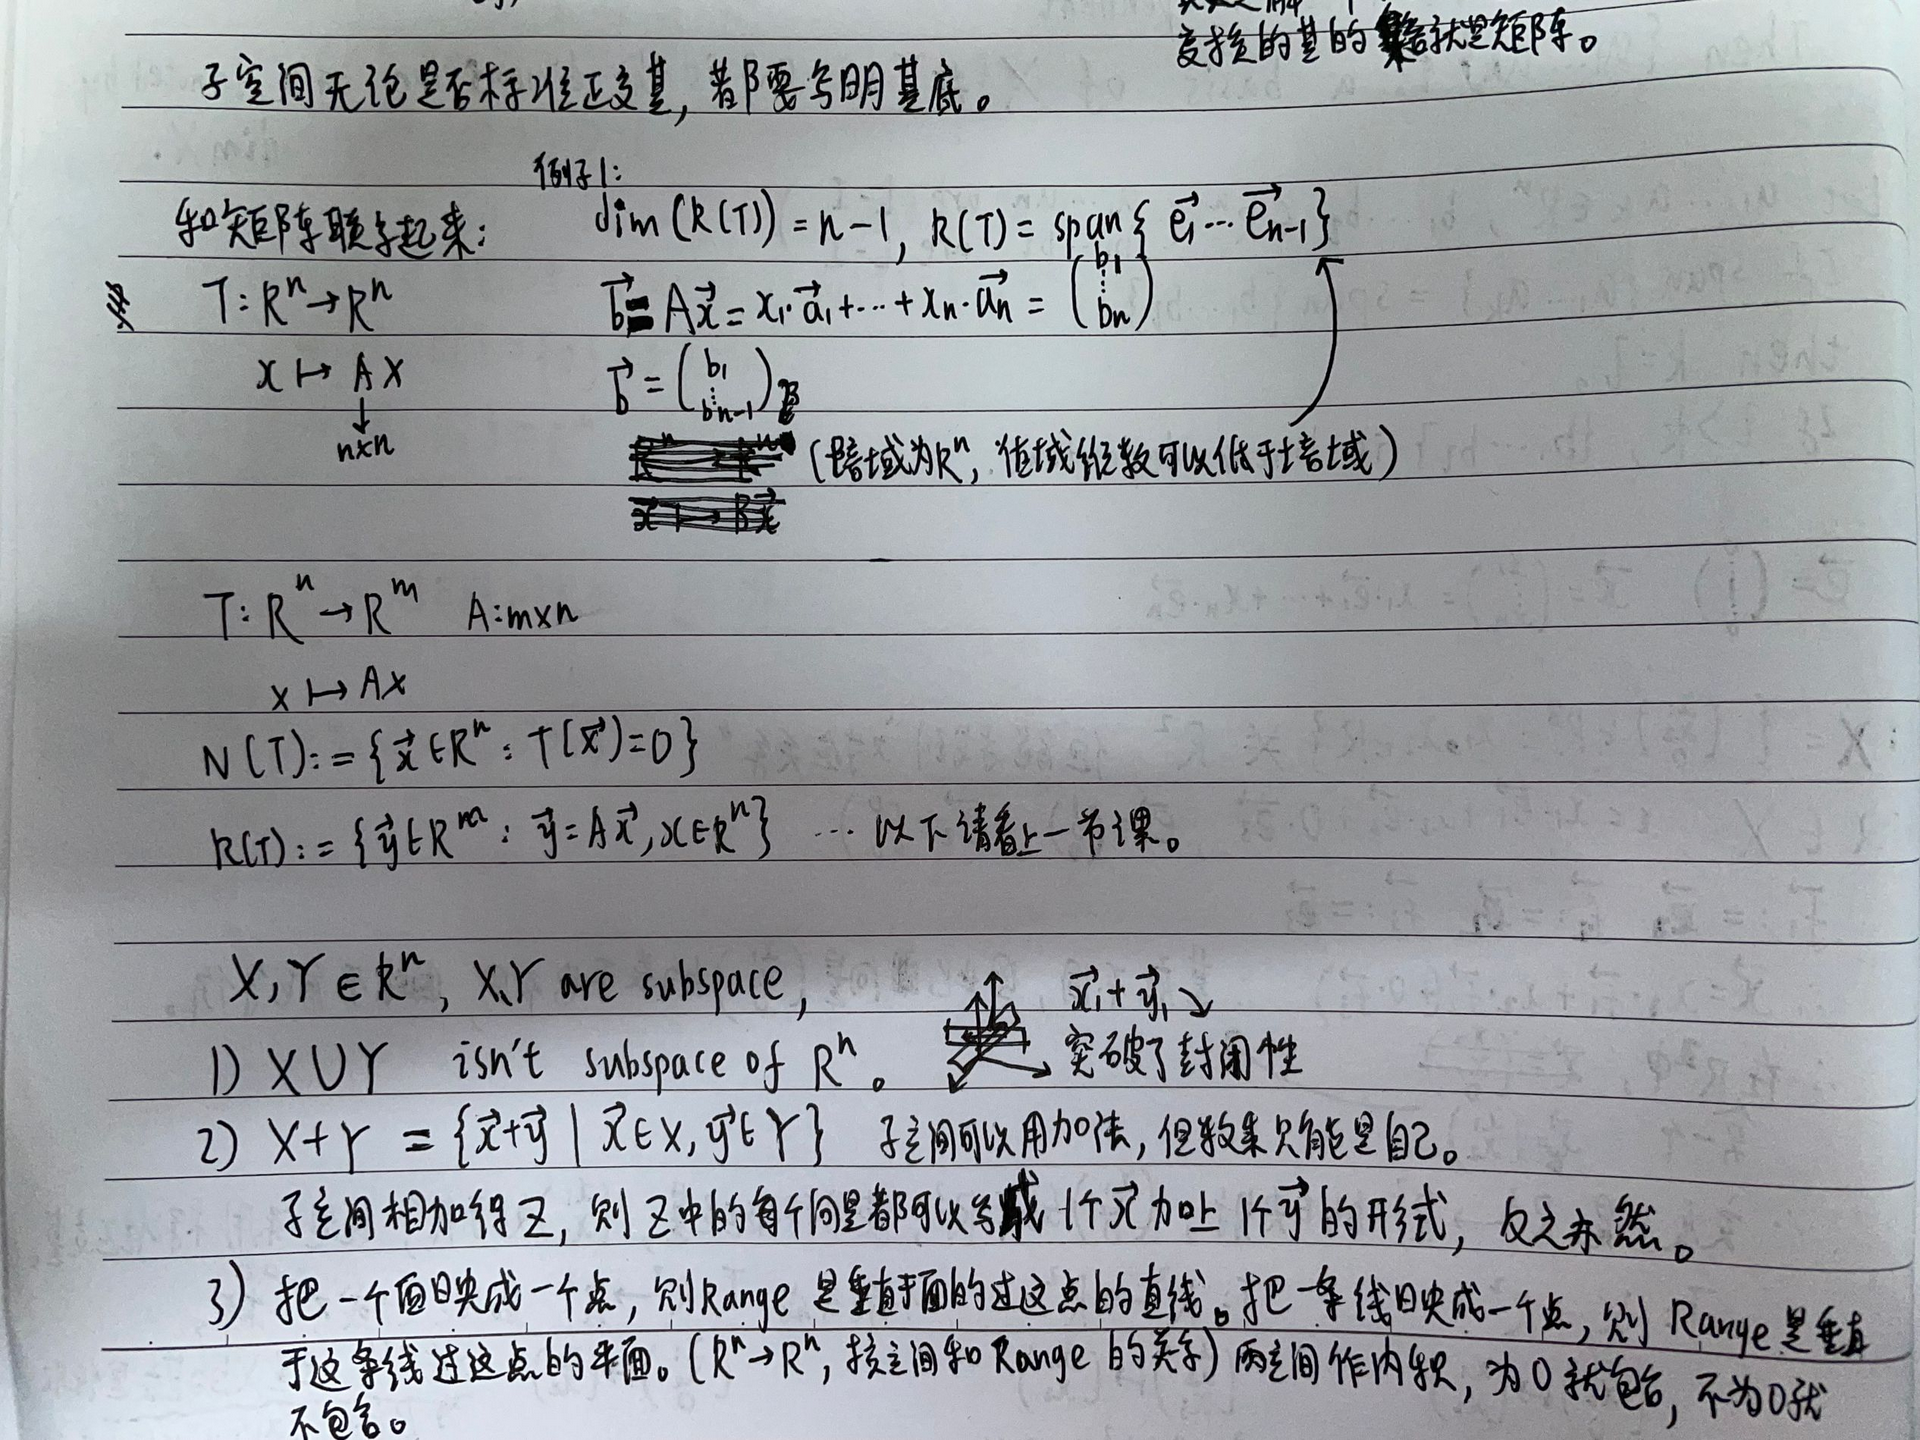 变换的基的集合就是矩阵。
子空间无论是否标准正交基，都要写明基底。
例子1:
和矩阵联系起来：
dim(R(T))=n-1, R(T)=span{e⃗₁…e⃗ₙ₋₁}
T: Rⁿ→Rⁿ
b⃗=Ax⃗=x₁·a⃗₁+…+xₙ·a⃗ₙ=(b₁ ⋮ bₙ)
x↦Ax
b⃗=(b₁ ⋮ bₙ₋₁)B
↓
n×n
(陪域为Rⁿ，值域维数可以低于培域)
T: Rⁿ→Rᵐ A:m×n
x↦Ax
N(T):={x⃗∈Rⁿ: T(x⃗)=0}
R(T):={y⃗∈Rᵐ: y⃗=Ax⃗, x∈Rⁿ} … 以下请看上一节课。
X,Y∈Rⁿ, X,Y are subspace,
x⃗₁+y⃗₁↘
1) X∪Y isn't subspace of Rⁿ。
突破了封闭性
2) X+Y={x⃗+y⃗|x⃗∈X,y⃗∈Y} 子空间可以用加法，但数集只能是自己。
子空间相加得Z，则Z中的每个向量都可以写成1个x⃗加上1个y⃗的形式，反之亦然。
3) 把一个面映成一个点，则Range是垂直于面的过这点的直线。把一条线映成一个点，则Range是垂直
于这条线过这点的平面。(Rⁿ→Rⁿ，核空间和Range的关系)两空间作内积，为0就包含，不为0就
不包含。